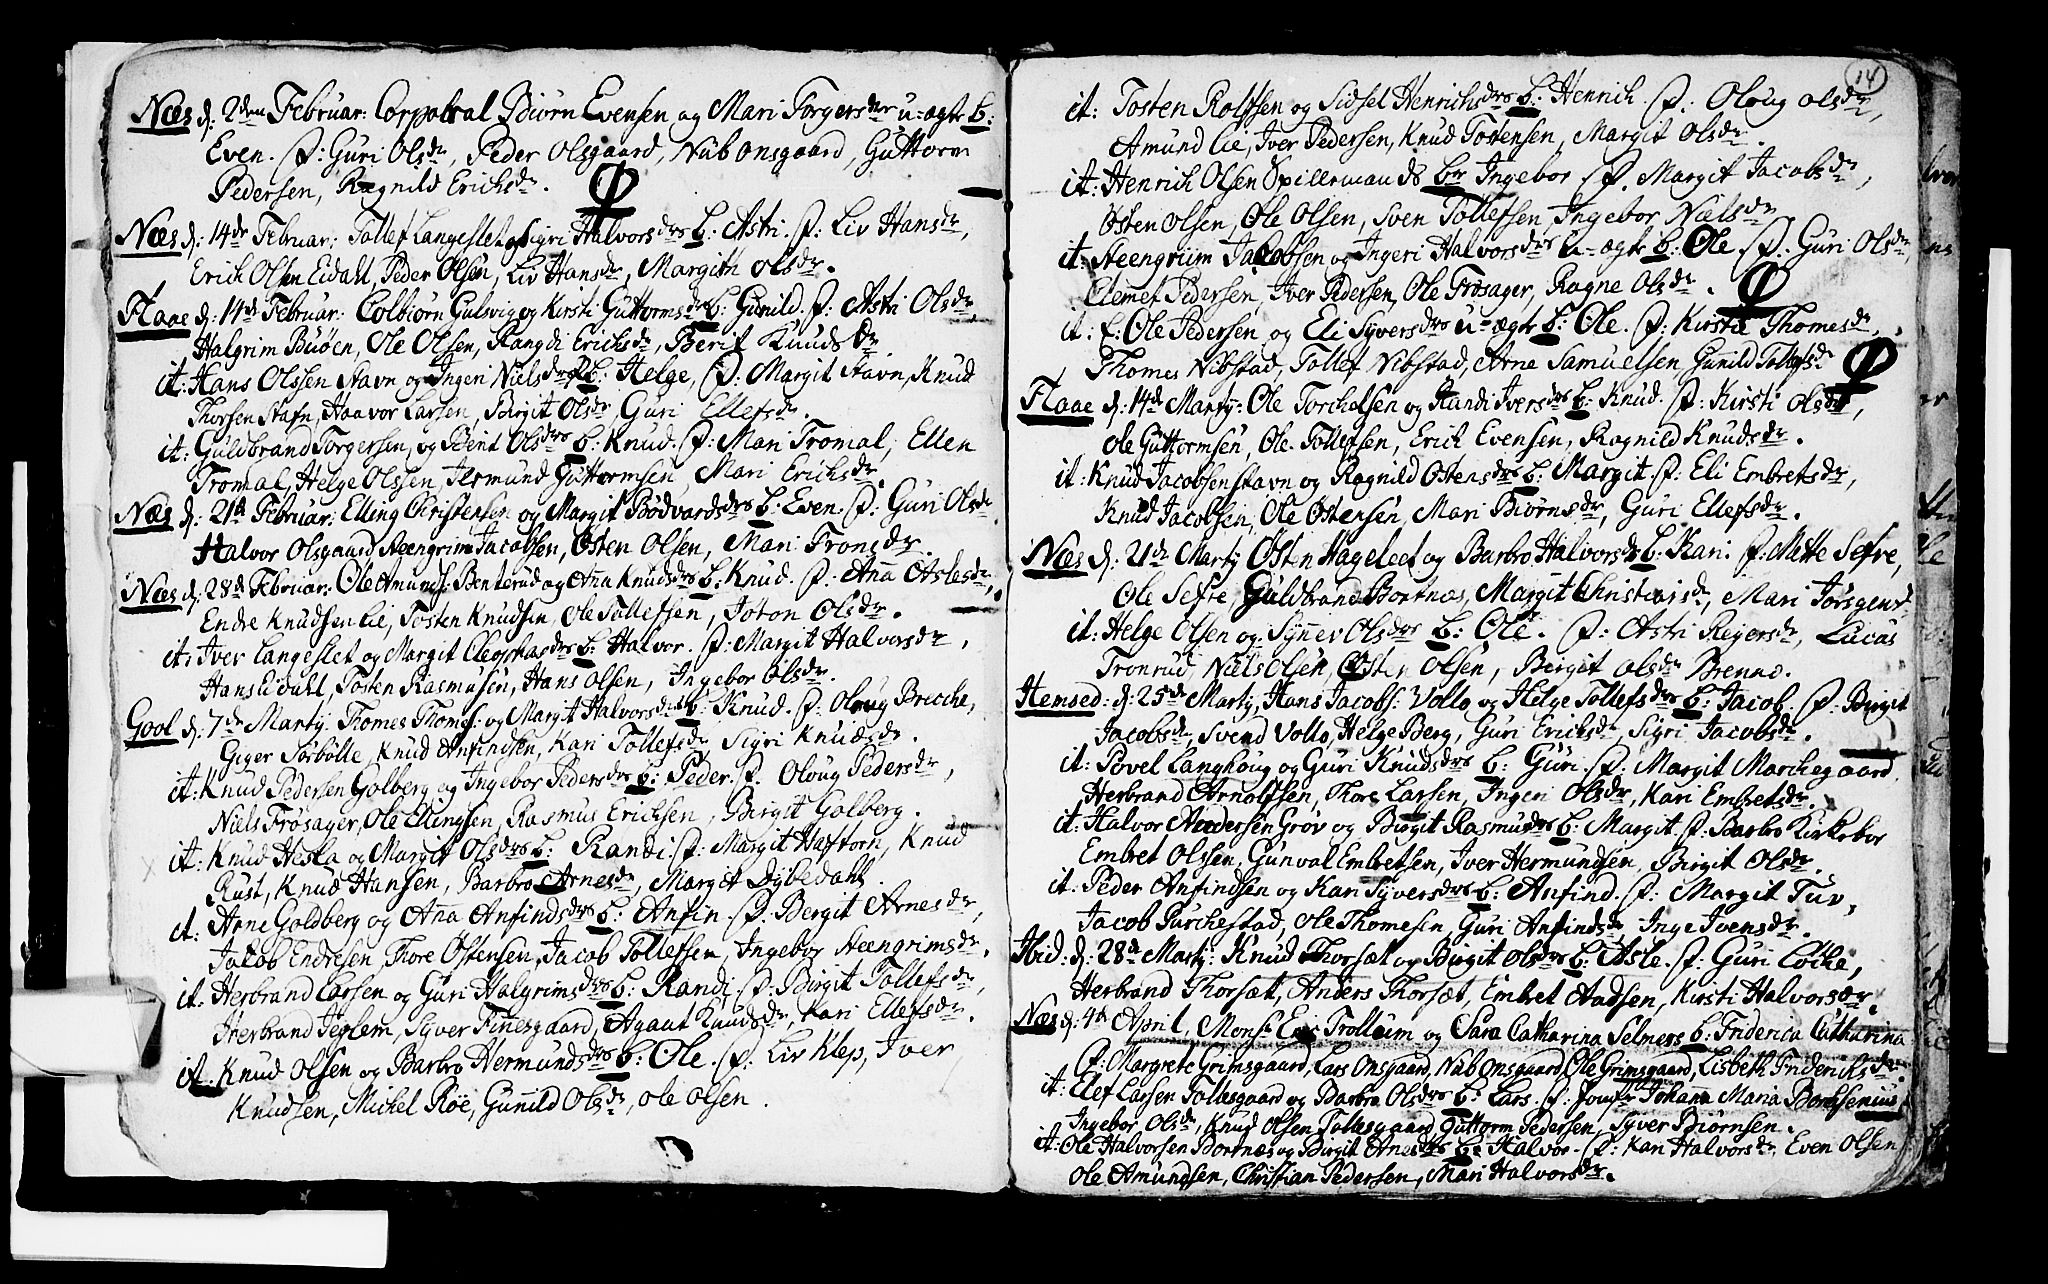 Næs d: 2den Februar: Corporal Biörn Evensen og Mari Torgersdtr u-ægte b:
Even. F: Guri Olsdr, Peder Olsgaard, Nub Onsgaard, Guttorm
Pedersen, Ragnild Erichsdr.
Næs d: 14de Februar: Tollef Langeslet og Sigri Halvorsdrs b: Astri. F: Liv Hansdr,
Erich Olsen Eidahl, Peder Olsen, Liv Hansdr, Margith Olsdr.
Flaae d: 14de Februar: Colbiörn Gulsvig og Kirsti Guttormsdrs b: Gunild. F: Astri Olsdr,
Halgrim Buöen, Ole Olsen, Rangdi Erichsdr, Berit Knudsdr.
it: Hans Olssen Stavn og Ingeri Nielsdrs b: Helge, F: Margit Stavn, Knud
Thorsen Stafn, Haavor Larsen, Birgit Olsdr, Guri Ellefsdr.
it: Guldbrand Torgersen, og Berit Olsdrs b: Knud. F: Mari Tromal, Ellen
Tromal, Helge Olssen, Guttormsen, Mari Erichsdr.
Næs d: 21de Februar: Elling Christensen og Margit Bödvardsdrs b: Even. F: Guri Olsdr.
Halvor Olsgaard, Steengrim Jacobsen, Östen Olsen, Mari Tronsdr.
Næs d: 28de Februar: Ole Amunds: Benterud og Anna Knudsdrs b: Knud. F: Anna Aslesdr,
Endre Knudsen Lie, Tosten Knudsen, Ole Tollefsen, Joron Olsdr.
it: Iver Langeslet og Margit b: Halvor. F: Margit Halvorsdr,
Hans Eidahl, Tosten Rasmusen, Hans Olsen, Ingebor Olsdr.
Gool d: 7de Martij. Thomes Thomes: og Margit Halvorsdrs b: Knud. F: Oloug Brecche,
Giger Sörbölle, Knud Anfindsen, Kari Tollefsdr, Sigri Knudsdr.
it: Knud Pedersen Golberg og Ingebor Pedersdrs b: Peder. F. Oloug Pedersdr,
Niels Frösager, Ole Ellingsen, Rasmus Erichsen, Birgit Golberg.
it: Knud Heska og Margit Olsdrs b: Randi. F: Margit Haftorn, Knud
Rust, Knud Hansen, Barbro Arnesdr, Margit Dybedahl.
it: Arne Goldberg og Anna Anfindsdrs b: Anfin. F: Bergit Arnesdr,
Jacob Endresen, Thore Östensen, Jacob Tollefsen, Ingebor Steengrimsdr.
it: Herbrand Larsen og Guri Halgrimsdrs b: Randi. F: Birgit Tollefsdr,
Herbrand Jeglem, Syver Finesgaard, Agaut Knudsdr, Kari Ellefsdr.
it: Knud Olsen og Barbro Hermundsdrs b: Ole. F: Liv Klep, Iver
Knudsen, Michel Röe, Gunild Olsdr, Ole Olsen.
14
it: Tosten Rolfsen og Sidsel Henrichsdrs b: Henrich. F: Oloug Olsdr,
Amund Lie, Iver Pedersen, Knud Tostensen, Margit Olsdr.
it: Henrich Olsen Spillemands br Ingebor F. Margit Jacobsdr,
Östen Olsen, Ole Olsen, Sven Tollefsen, Ingebor Nielsdr
it: Steengrim Jacobsen og Ingeri Halvorsdrs u-ægte b: Ole F: Guri Olsdr,
Clemet Pedersen, Iver Pedersen, Ole Frösager, Ragne Olsdr.
it: Ole Pedersen og Eli Syversdrs u-ægte b: Ole. F: Kirstie Thomesdr,
Thomes Nibstad, Tollef Nibstad, Arne Samuelsen, Gunild Tollefsdr
Flaae d: 14de Martij: Ole Torchelsen og Randi Iversdrs b: Knud. F: Kirsti Olsdr,
Ole Guttormsen, Ole Tollefsen, Erich Evensen, Ragnild Knudsdr.
it: Knud Jacobsen Stavn og Ragnild Östensdrs b: Margit. F: Eli Embretsdr,
Knud Jacobsen, Ole Östensen, Mari Biörnsdr, Guri Ellefsdr.
Næs d: 21de Martij Östen Hageleet og Barbro Halvorsdrs b: Kari. F: Mette Sefre,
Ole Sefre, Guldbrand Bortnæs, Margit Christensdr, Mari
it: Helge Olsen og Synnev Olsdrs b: Ole. F: Astri Reyersdr, Lucas
Tronrud, Niels Olsen, Östen Olsen, Birgit Olsdr Brenno.
Hemsed: d: 25de Martij, Hans Jacobs: Vollo og Helge Tollefsdrs b: Jacob. F: Birgit
Jacobsdr, Svend Vollo, Helge Berg, Guri Erichsdr, Sigri Jacobsdr.
it: Povel Langhoug og Guri Knudsdrs b: Guri. F: Margit Marchegaard,
Herbrand Arnolfsen, Thore Larsen, Ingeri Olsdr, Kari Embretsdr.
it: Halvor Andersen Gröv og Birgit Rasmusdrs b: Margit. F: Barbro Kirkebör
Embret Olssen, Gunval Embretsen, Iver Hermundsen, Birgit Olsdr.
it: Peder Anfindsen og Kari Syversdrs b: Anfind. F: Margit Tuv,
Jacob Purchestad, Ole Thomesen, Guri Anfindsdr, Inge Ivensdr.
Aid: d: 28de Martij: Knud Thorsæt og Birgit Olsdrs b: Asle. F: Guri Löche,
Herbrand Thorsæt, Anders Thorsæt, Embret Aadsen, Kirsti Halvorsdr.
Næs d: 4de April, Mons: Eric Trollum og Sara Catharina Selmers b: Friderica Catharina
F: Margrete Grimsgaard, Lars Onsgaard, Nub Onsgaard, Ole Grimsgaard, Lisbeth Fridericksdr.
it: Elef Larsen Tollesgaard og Barbro Olsdrs b: Lars. F: Jomfr Johanna Maria
Ingebor Olsdr, Knud Olsen Tollesgaard, Guttorm Pedersen, Syver Biörnsen.
it: Ole Halvorsen Bortnæs og Birgit Arnesdrs b: Halvor. F: Kari Halvorsdr, Even Olsen
Ole Amundsen, Christian Pedersen, Mari Halvorsdr.